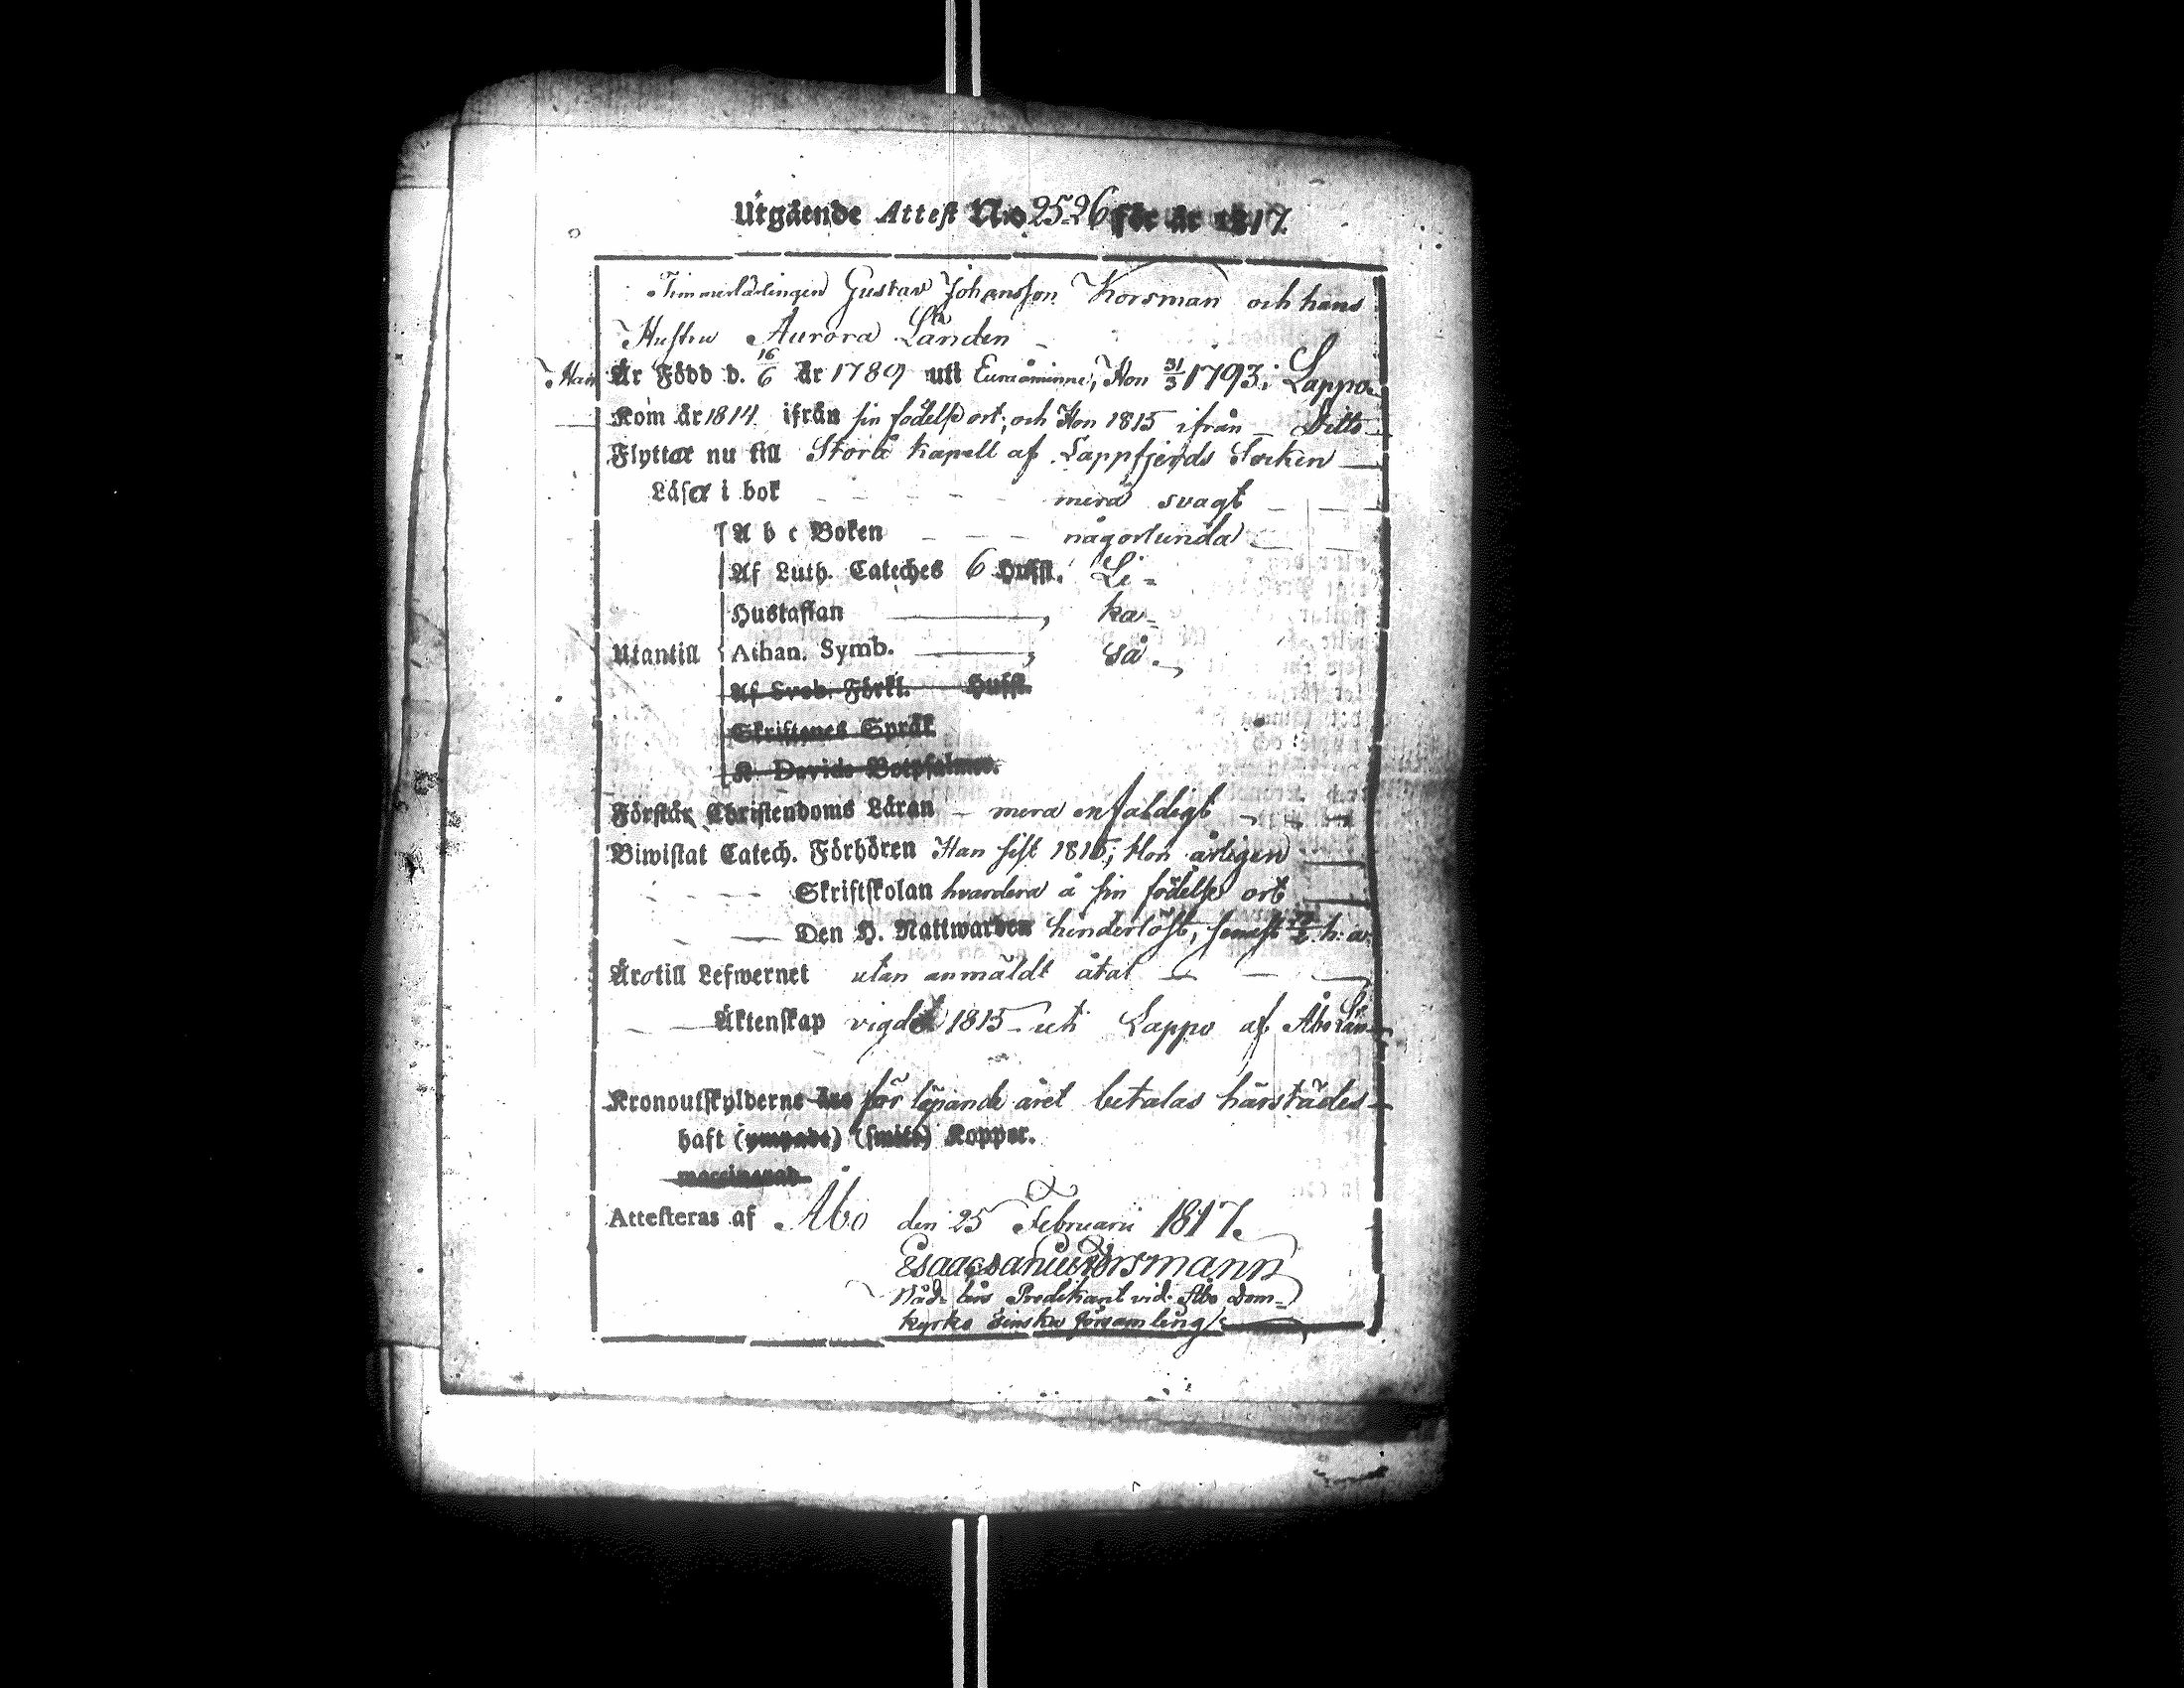 Utgående Attest N:o 25-26 för år 1817.
Timmerlärlingen Gustav Johansson Korsman och hans
Hustru Aurora Landen
Han Är Född d. 16/6 år 1789 uti Euraåminne, Hon 31/3 1793 i Lappo
Kom år 1814 ifrån sin födelse ort, och Hon 1815 ifrån Ditto
Flyttar nu till Storå Kapell af Lappfjerds Socken
Läsa i bok mera svagt
A b c Boken någorlunda
Af Luth. Cateches 6 Hufst. Li-
Hustaflan ka-
Utantill Athan. Symb. så.
Af Sveb. Förkl. Hufst.
Skriftenes Språk
K. Davids Botpsalmer.
Förstår Christendoms Läran mera enfaldigt
Biwistat Catech. Förhören Han sist 1815, Hon årligen
Skriftskolan hvardera å sin födelse ort
Den H. Nattwarden hinderlöst, senast h: a:
Äro till Lefwernet utan anmäldt åtal
Äktenskap vigde 1815 uti Lappo af Åbo Län
Kronoutskylderne äro för löpande året betalas härstädes
haft (ympade) (smitt) Koppor.
vaccinerad
Attesteras af Åbo den 25 Februarii 1817.
Predikant vid Åbo Dom-
kyrko finska församling